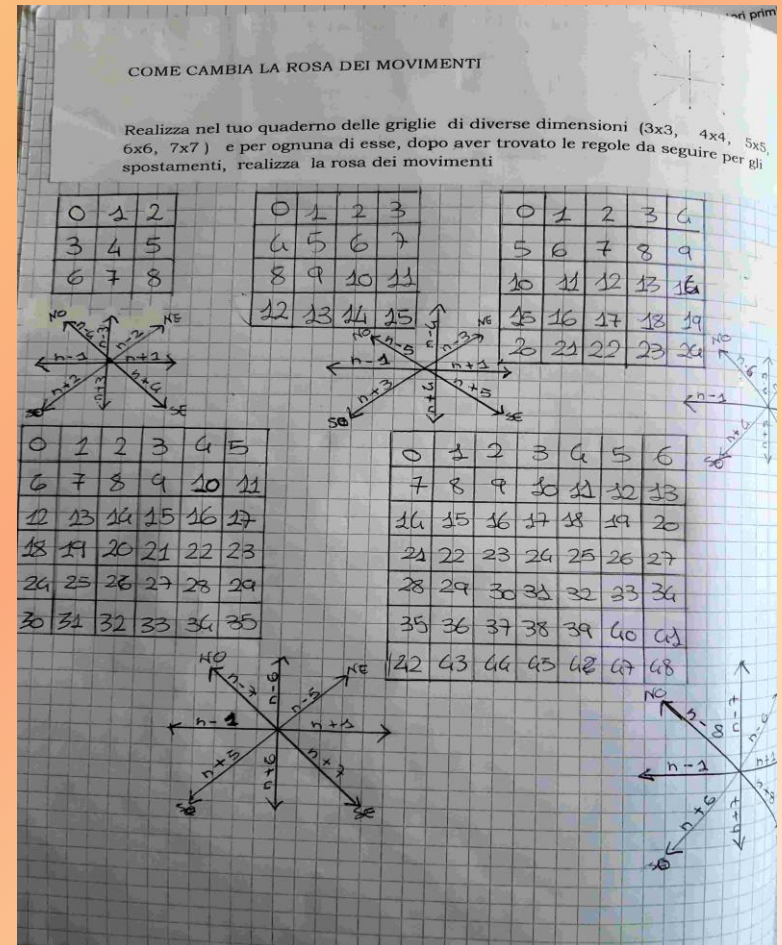 COME CAMBIA LA ROSA DEI MOVIMENTI
Realizza nel tuo quaderno delle griglie di diverse dimensioni (3x3, 4x4, 5x5,
6x6, 7x7 ) e per ognuna di esse, dopo aver trovato le regole da seguire per gli
spostamenti, realizza la rosa dei movimenti
0 1 2
3 4 5
6 7 8
NO n-4 n-3 n-2 NE
n-1 n+1
n+2 n+3 n+4
SO SE
0 1 2 3
4 5 6 7
8 9 10 11
12 13 14 15
NO n-5 n-4 n-3 NE
n-1 n+1
n+3 n+4 n+5
SO SE
0 1 2 3 4
5 6 7 8 9
10 11 12 13 14
15 16 17 18 19
20 21 22 23 24
NO n-6 n-5
n-1
n+4 n+5
SO
0 1 2 3 4 5
6 7 8 9 10 11
12 13 14 15 16 17
18 19 20 21 22 23
24 25 26 27 28 29
30 31 32 33 34 35
NO n-7 n-6 n-5 NE
n-1 n+1
n+5 n+6 n+7
SO SE
0 1 2 3 4 5 6
7 8 9 10 11 12 13
14 15 16 17 18 19 20
21 22 23 24 25 26 27
28 29 30 31 32 33 34
35 36 37 38 39 40 41
42 43 44 45 46 47 48
NO n-8 n-7 n-6
n-1 n+1
n+6 n+7 n+8
SO